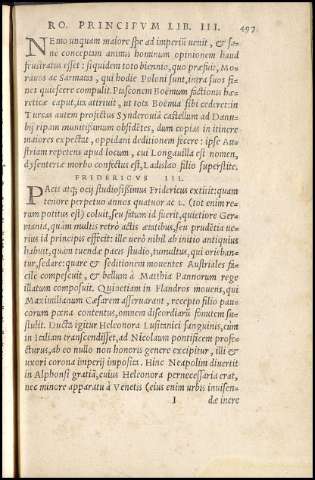 RO. PRINCIPVM LIB. III. 497
NEmo unquam maiore spe ad imperiū uenit, & sa-
ne conceptam animo hominum opinionem haud
frustratus esset: siquidem toto biennio, quo præfuit, Mo-
rauos ac Sarmatas, qui hodie Poloni sunt, intra suos fi-
nes quiescere compulit. Ptasconem Boëmum factionis hæ-
reticæ caput, ita attriuit, ut tota Boëmia sibi cederet: in
Turcas autem profectus Synderouiā castellum ad Danu-
bij ripam munitissimum obsidēs, dum copias in itinere
maiores expectat, oppidani deditionem fecere: ipse Au-
striam repetens apud locum, cui Longauilla est nomen,
dysenteriæ morbo confectus est, Ladislao filio superstite.
FRIDERICVS III.
PAcis atq; ocij studiosissimus Fridericus extitit: quam
tenore perpetuo annos quatuor ac L. (tot enim re-
rum potitus est) coluit, seu fatum id fuerit, quietiore Ger-
mania, quàm multis retrò actis ætatibus, seu prudētia ue-
rius id principis effecit: ille uerò nihil ab initio antiquius
habuit, quàm tuendæ pacis studio, tumultus, qui orieban-
tur, sedare: quare & seditionem mouentes Australes fa-
cile compescuit, & bellum à Matthia Pannorum rege
illatum composuit. Quinetiam in Flandros mouens, qui
Maximilianum Cæsarem asseruarant, recepto filio pau-
corum pœna contentus, omnem discordiarū fomitem su-
stulit. Ducta igitur Heleonora Lusitanici sanguinis, cùm
in Italiam transcendisset, ad Nicolaum pontificem profe-
cturus, ab eo nullo non honoris genere excipitur, illi &
uxori corona imperij imposita. Hinc Neapolim diuertit
in Alphonsi gratiā, cuius Heleonora pernecessaria erat,
nec minore apparatu à Venetis (eius enim urbis inuisen-
I dæ incre